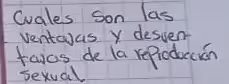 Cuales son las
ventajas y desven-
tajas de la reproducción
sexual.